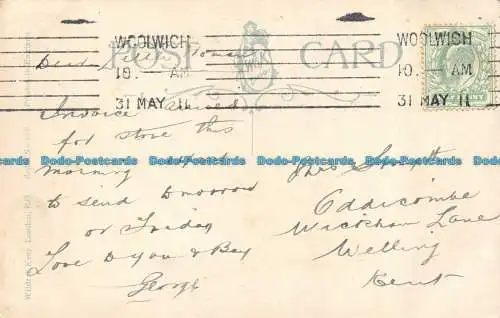 POST CARD
WOOLWICH
10. AM
31 MAY 11
WOOLWICH
10. AM
31 MAY 11
Dear
Invoice
for store this
morning
to send tomorrow
or Friday
Love to you & Boy
George
Mrs
Oddicombe
Wickham Lane
Welling
Kent
Dodo-Postcards Dodo-Postcards Dodo-Postcards Dodo-Postcards Dodo-Postcards
Dodo-Postcards Dodo-Postcards Dodo-Postcards Dodo-Postcards Dodo-Postcards